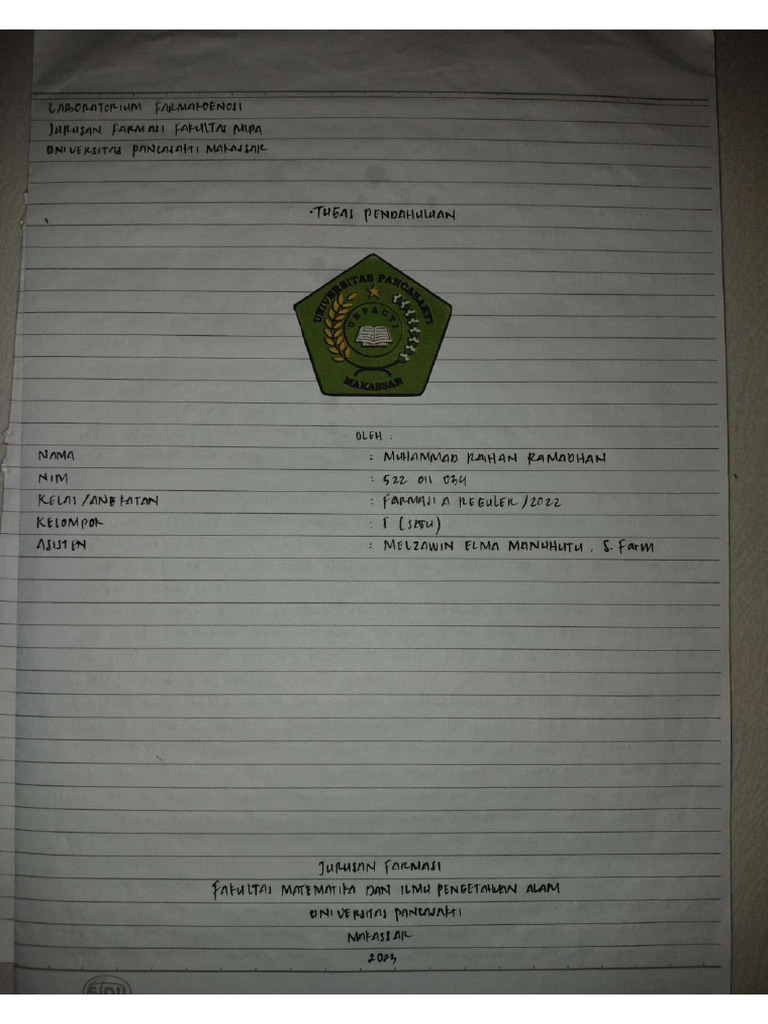 LABORATORIUM FARMAKOGNOSI
JURUSAN FARMASI FAKULTAS MIPA
UNIVERSITAS PANCASAKTI MAKASSAR
TUGAS PENDAHULUAN
UNIVERSITAS PANCASAKTI
UNPACTI
MAKASSAR
OLEH :
NAMA : MUHAMMAD RAIHAN RAMADHAN
NIM : 522 011 034
KELAS/ANGKATAN : FARMASI A REGULER/2022
KELOMPOK : I (SATU)
ASISTEN : MELZAWIN ELMA MANUHUTU, S. Farm
JURUSAN FARMASI
FAKULTAS MATEMATIKA DAN ILMU PENGETAHUAN ALAM
UNIVERSITAS PANCASAKTI
MAKASSAR
2023
SIDU